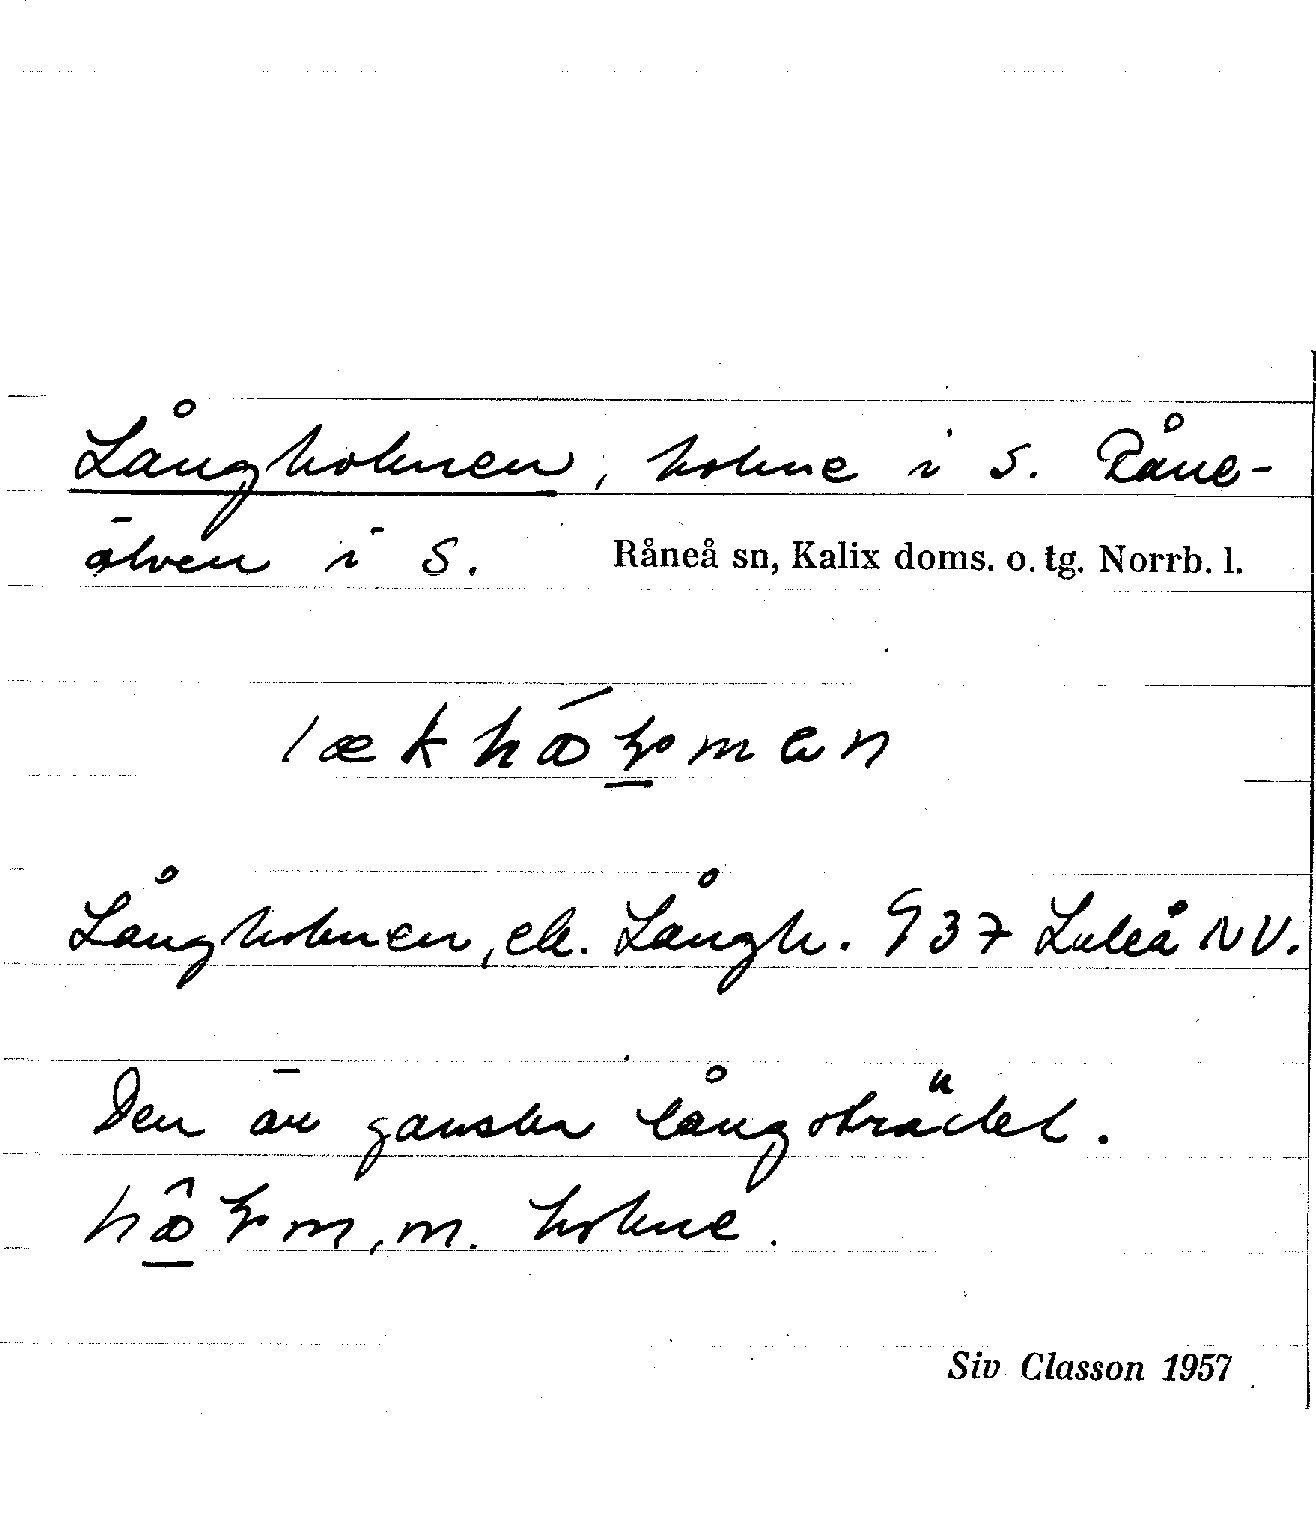 Långholmen, holme i S. Råne-
älven i S. Råneå sn, Kalix doms. o. tg. Norrb. l.
Långholmen, ek. Långh. 937 Luleå NV.
Den är ganska långsträckt.
m. holme.
Siv Classon 1957